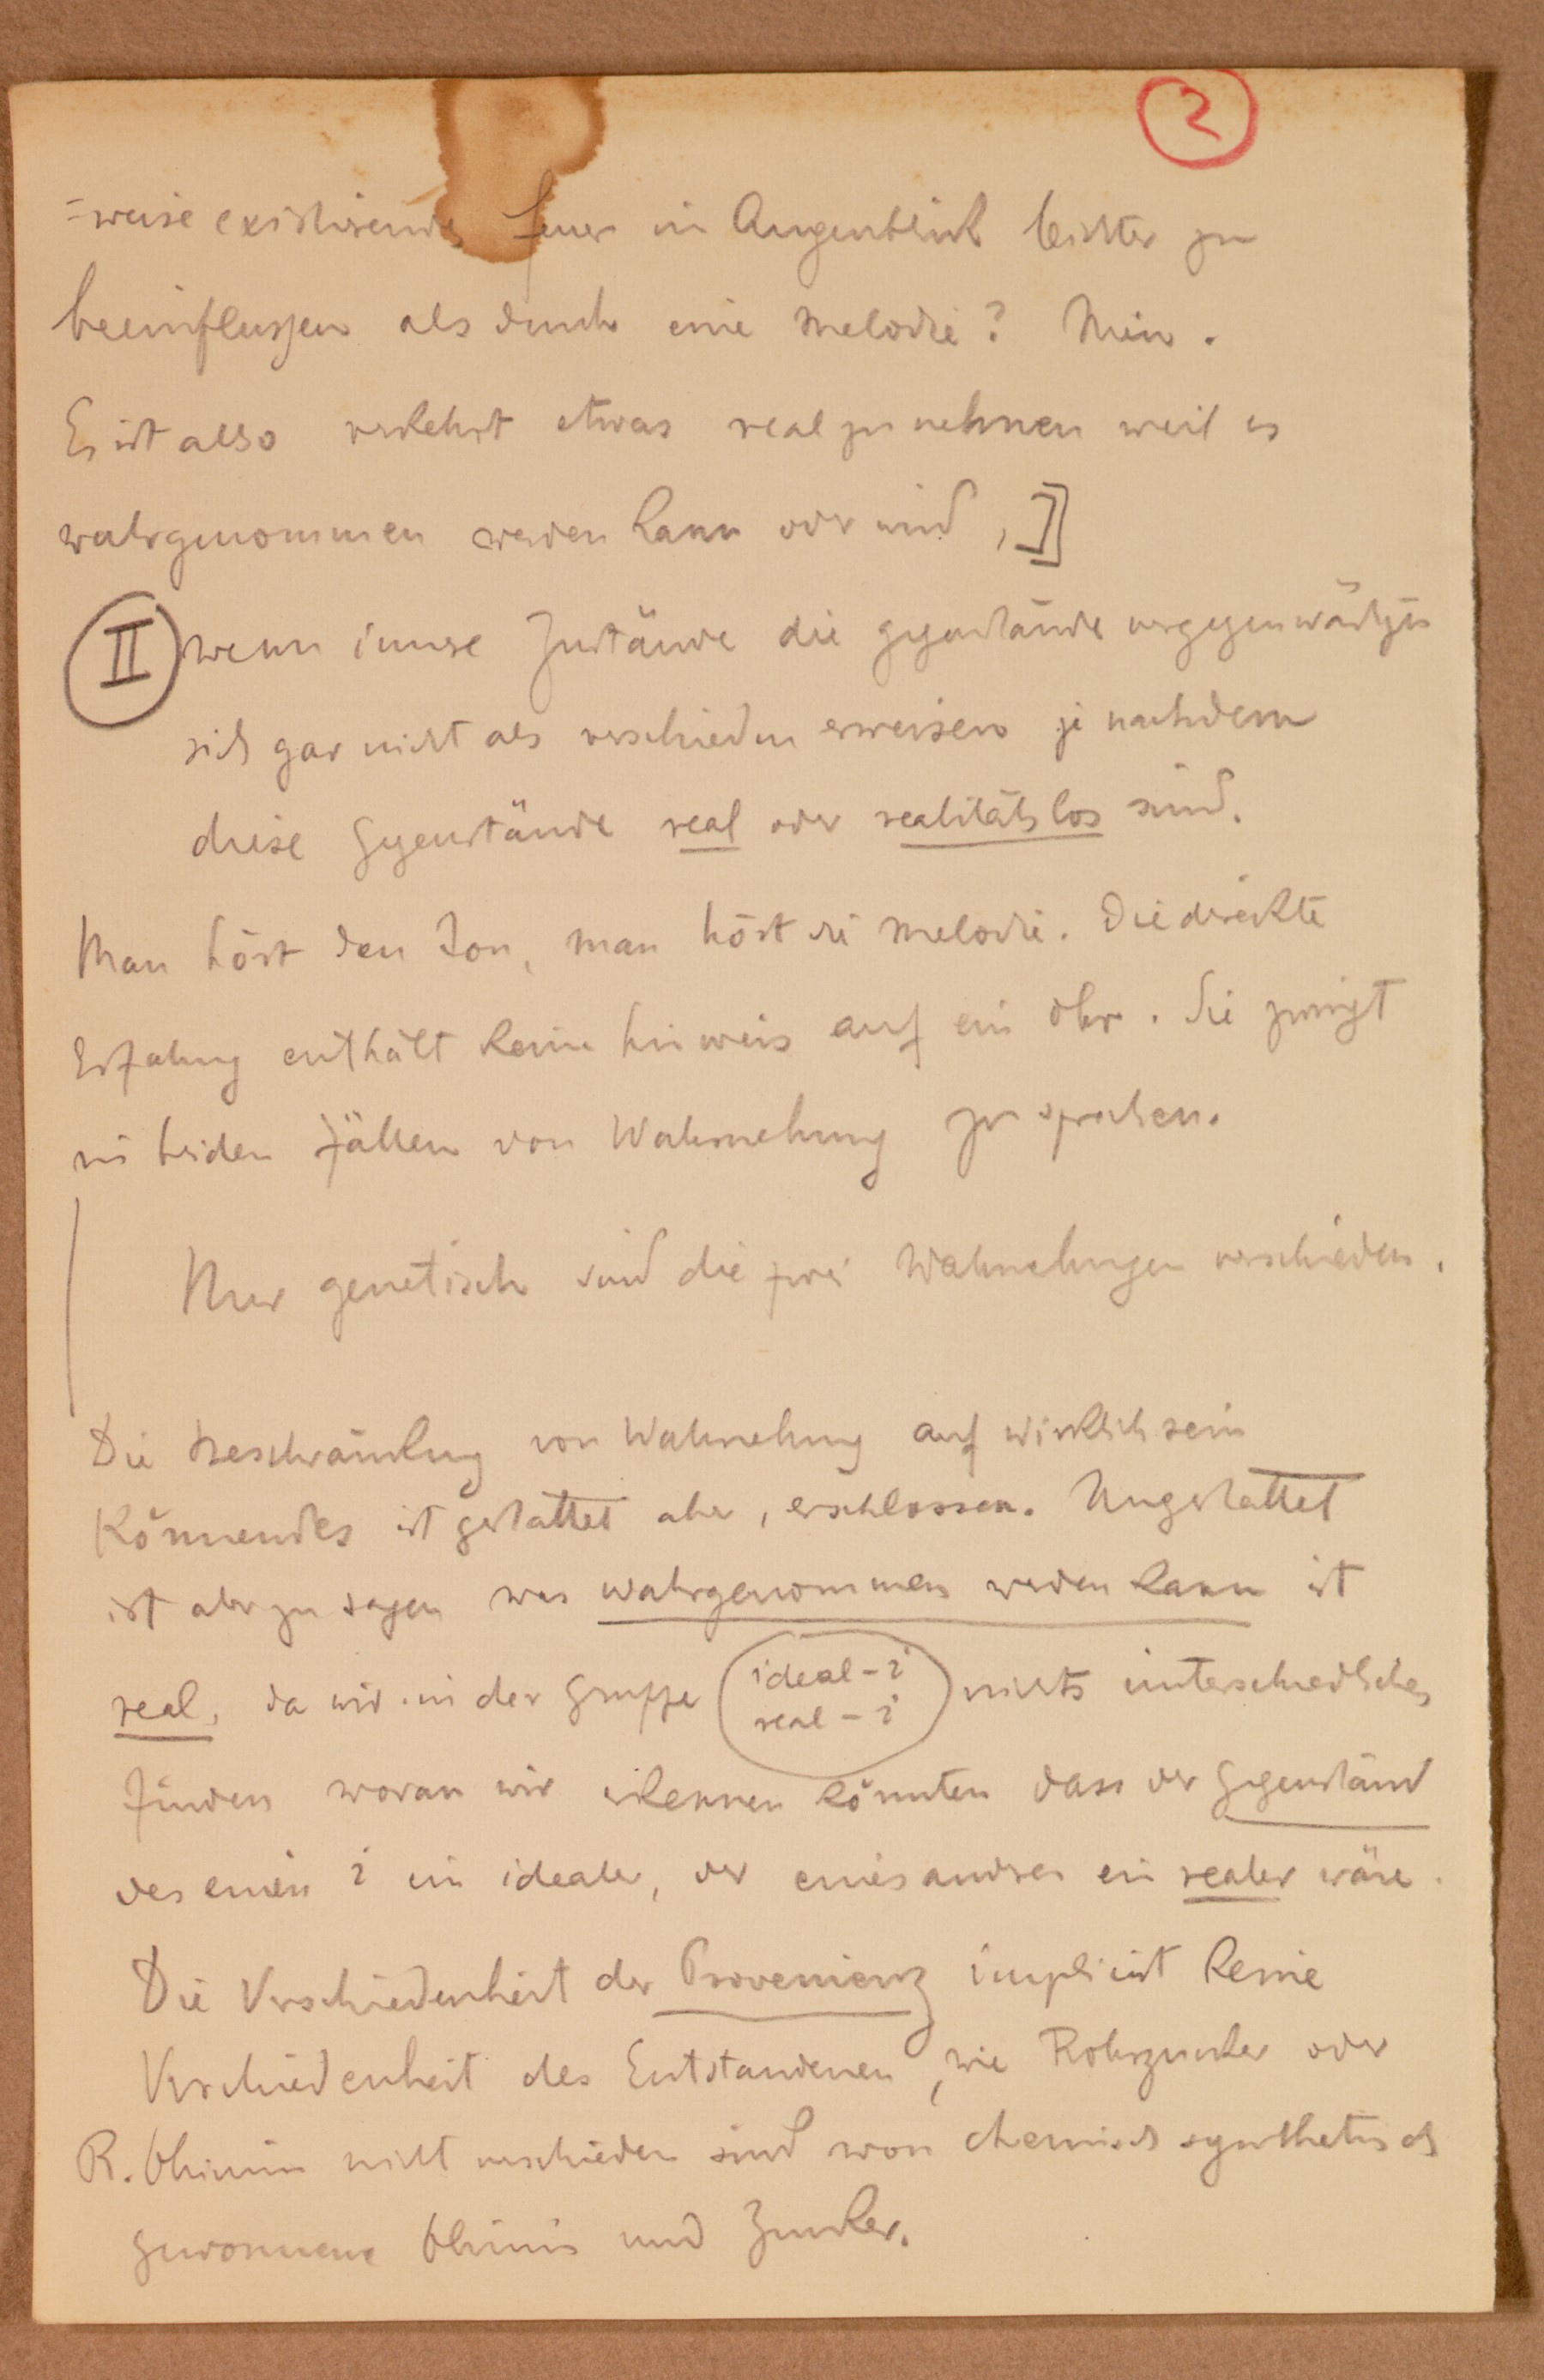 2
=weise existirendes Feuer im Augenblick leichter zu
beeinflussen als durch eine Melodie? Nein.
Es ist also verkehrt etwas real zu nehmen weil es
wahrgenommen werden kann oder wird, ]]
II wenn innere Zustände die Gegenstände vergegenwärtigen
sich gar nicht als verschieden erweisen je nachdem
diese Gegenstände real oder realitätslos sind.
Man hört den Ton, man hört die Melodie. Die direkte
Erfahrung enthält keinen Hinweis auf ein Ohr. Sie zwingt
in beiden Fällen von Wahrnehmung zu sprechen.
Nur genetisch sind die zwei Wahrnehmungen verschieden.
Die Beschränkung von Wahrnehmung auf wirklich sein
Könnendes ist gestattet aber, erschlossen. Ungestattet
ist aber zu sagen was wahrgenommen werden kann ist
real, da wir in der Gruppe (ideal - i
real - i) nichts unterschiedliches
finden woran wir erkennen könnten dass der Gegenstand
des einen i ein idealer, der eines andren ein realer wäre.
Die Verschiedenheit der Provenienz implicirt keine
Verschiedenheit des Entstandenen, wie Rohrzucker oder
R. Chinin nicht verschieden sind von chemisch synthetisch
gewonnene Chinin und Zucker.